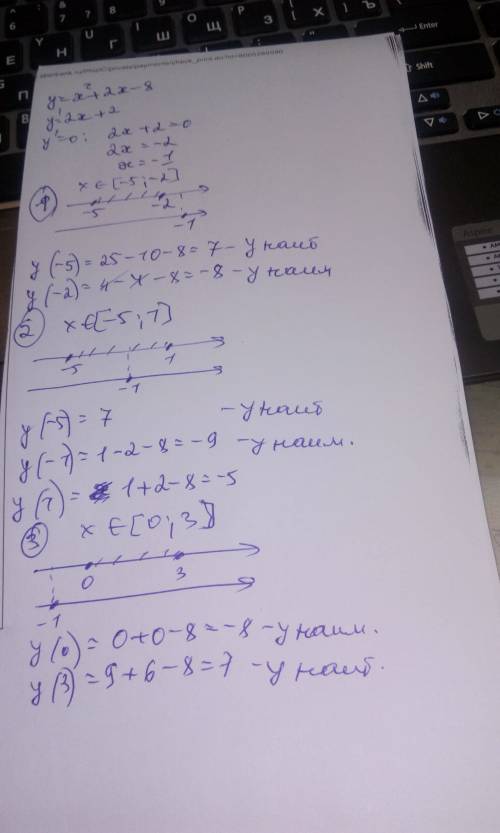 y=x²+2x-8
y'=2x+2
y'=0; 2x+2=0
2x=-2
x=-1
① x∈[-5;-2]
-5 -2
-1
y(-5)=25-10-8=7-y наиб
y(-2)=4-4-8=-8-y наим
② x∈[-5;1]
-5 1
-1
y(-5)=7 -y наиб
y(-1)=1-2-8=-9 -y наим.
y(1)= 1+2-8=-5
③ x∈[0;3]
0 3
-1
y(0)=0+0-8=-8-y наим.
y(3)=9+6-8=7 -y наиб.